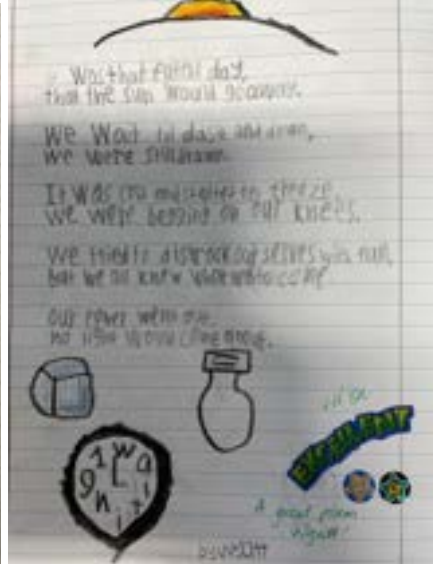 Was that fatal day,
that the sun would go away.
We wait til dusk and dawn,
We were still drawn.
It was and started to freeze,
We were begging on our knees.
We tried to ourselves with fun,
but we all knew what was to come.
our power went out,
no light would come
EXCELLENT
A great poem